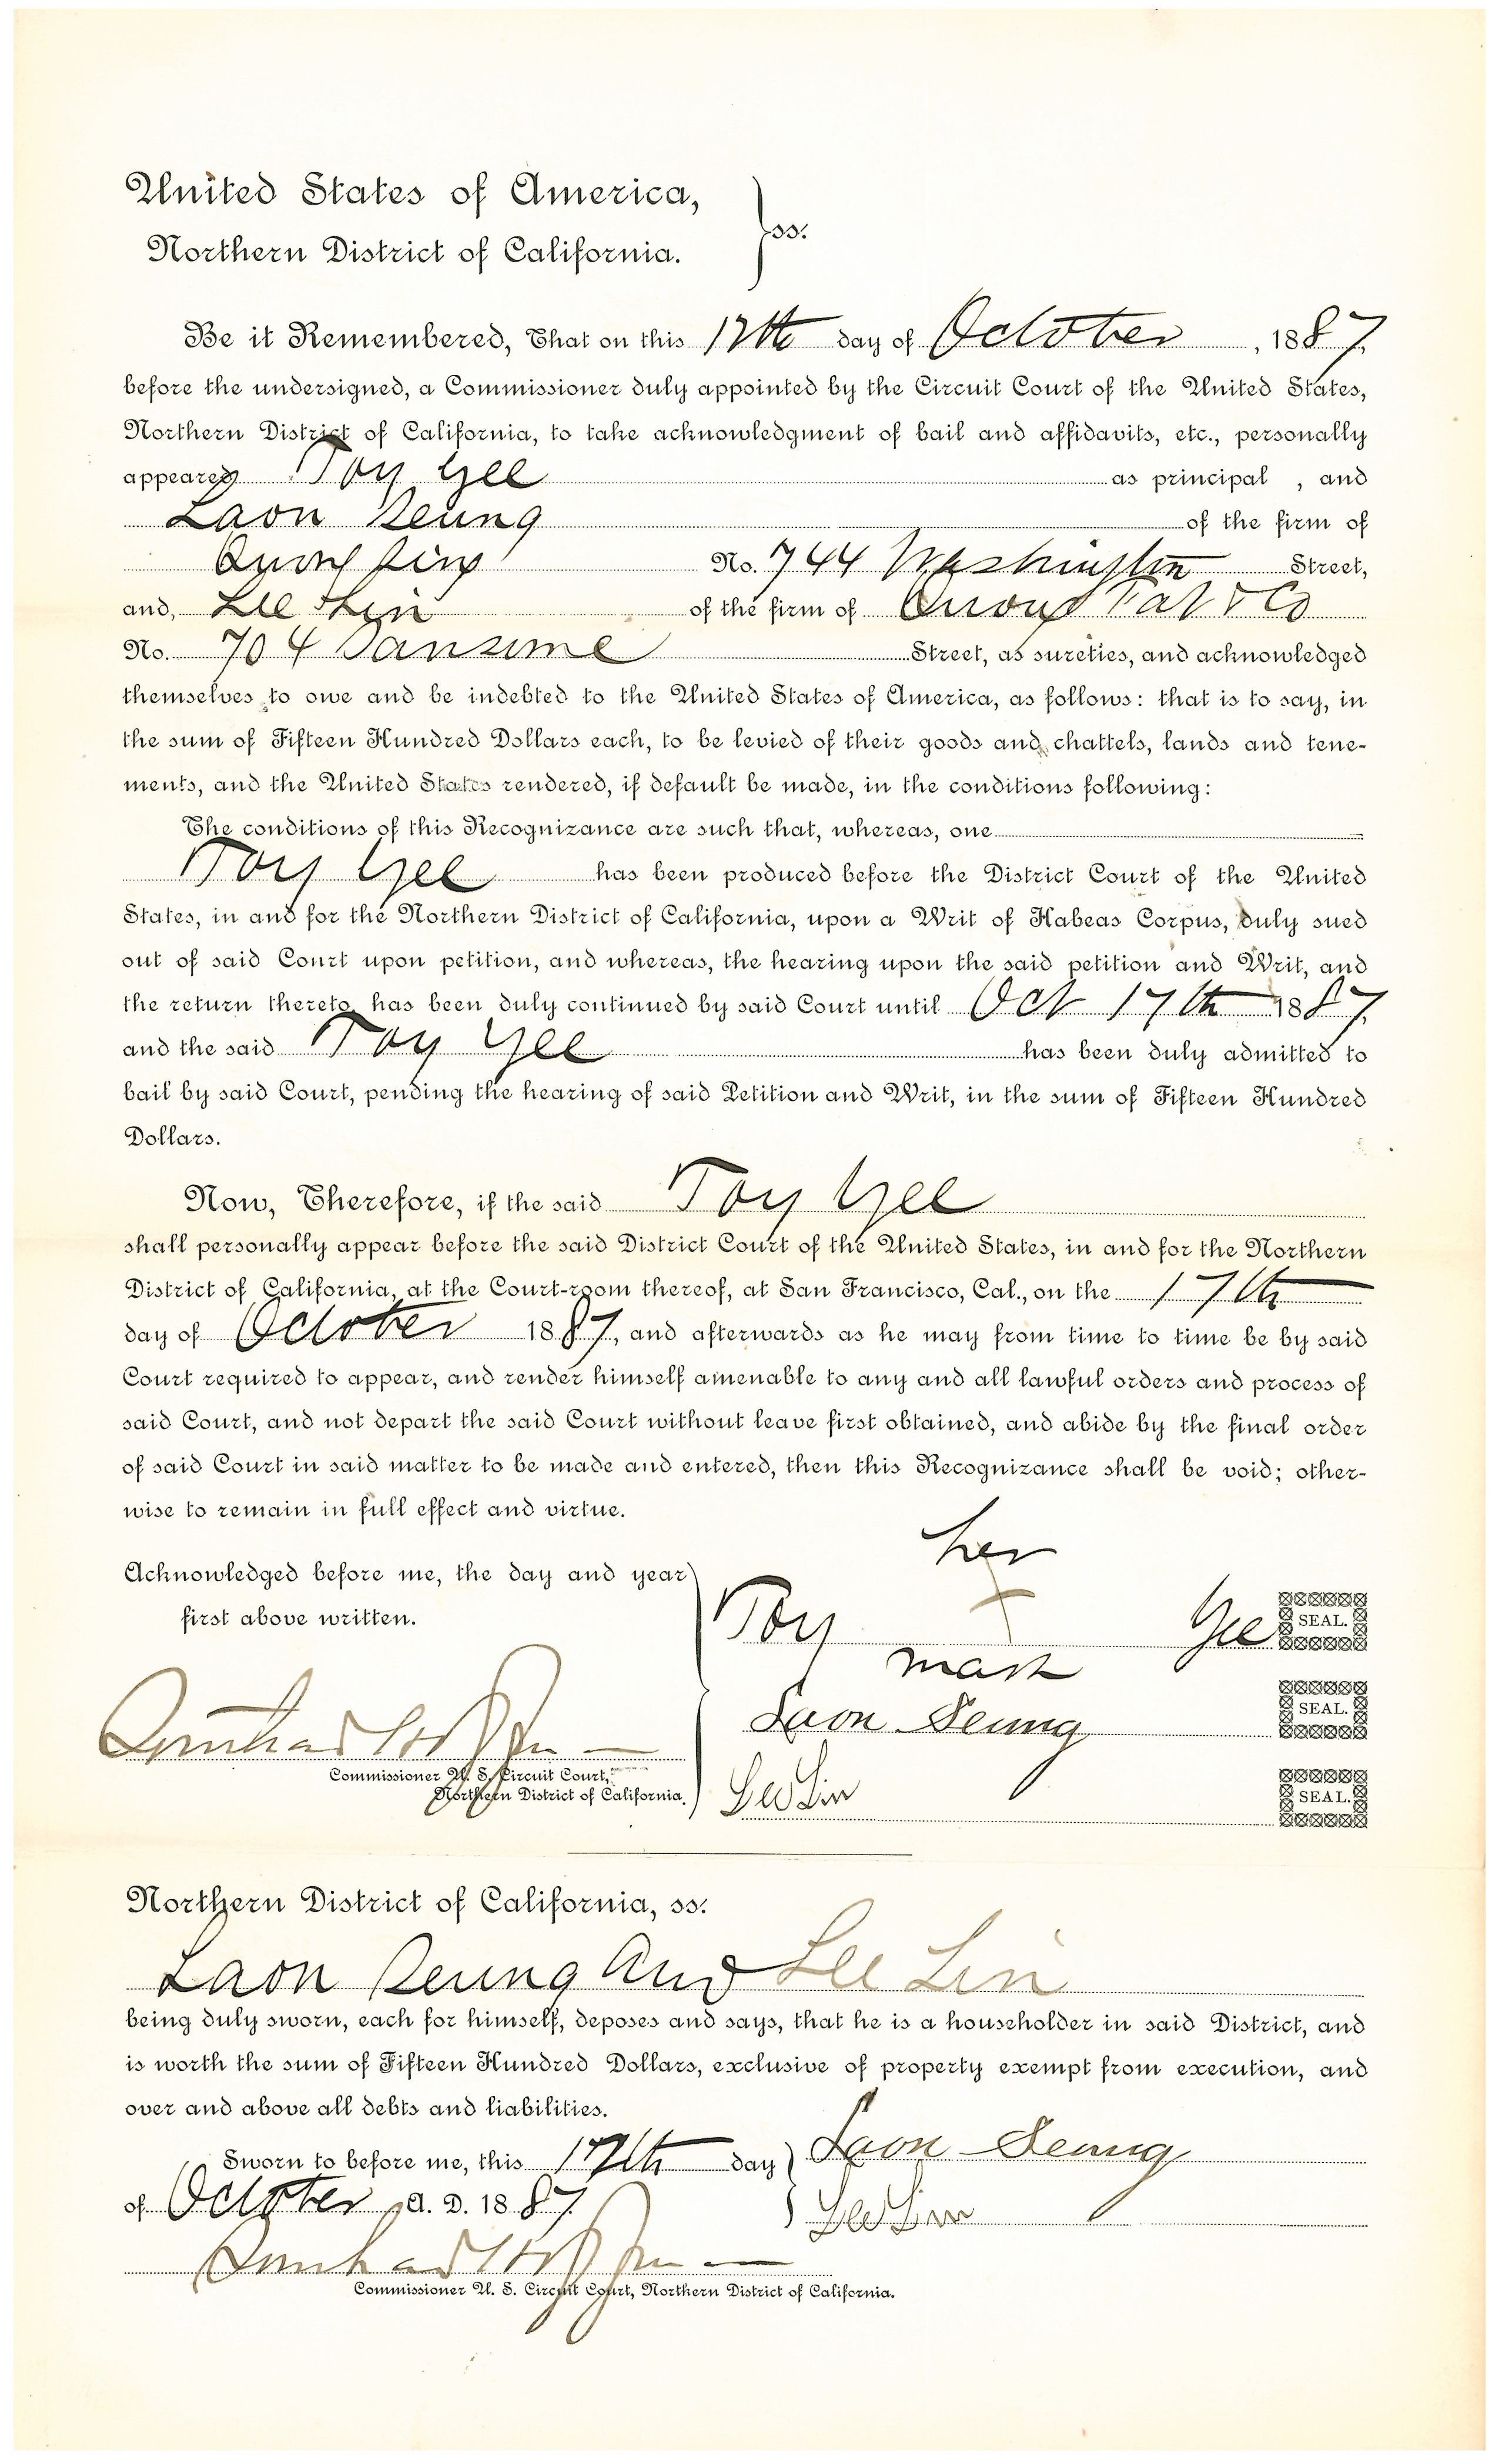 United States of America,
Northern District of California. } ss.
Be it Remembered, That on this 12th day of October, 1887,
before the undersigned, a Commissioner duly appointed by the Circuit Court of the United States,
Northern District of California, to take acknowledgment of bail and affidavits, etc., personally
appeared Toy Gee as principal , and
Laon Seung of the firm of
Quong Sing No. 744 Washington Street,
and, Lee Lin of the firm of Quong Tat & Co
No. 704 Sansome Street, as sureties, and acknowledged
themselves to owe and be indebted to the United States of America, as follows: that is to say, in
the sum of Fifteen Hundred Dollars each, to be levied of their goods and chattels, lands and tene-
ments, and the United States rendered, if default be made, in the conditions following:
The conditions of this Recognizance are such that, whereas, one
Toy Gee has been produced before the District Court of the United
States, in and for the Northern District of California, upon a Writ of Habeas Corpus, duly sued
out of said Court upon petition, and whereas, the hearing upon the said petition and Writ, and
the return thereto has been duly continued by said Court until Oct 17th 1887,
and the said Toy Gee has been duly admitted to
bail by said Court, pending the hearing of said Petition and Writ, in the sum of Fifteen Hundred
Dollars.
Now, Therefore, if the said Toy Gee
shall personally appear before the said District Court of the United States, in and for the Northern
District of California, at the Court-room thereof, at San Francisco, Cal., on the 17th
day of October 1887, and afterwards as he may from time to time be by said
Court required to appear, and render himself amenable to any and all lawful orders and process of
said Court, and not depart the said Court without leave first obtained, and abide by the final order
of said Court in said matter to be made and entered, then this Recognizance shall be void; other-
wise to remain in full effect and virtue.
her
Acknowledged before me, the day and year
first above written.
Toy X Gee SEAL.
mark
Laon Seung SEAL.
Commissioner U. S. Circuit Court,
Northern District of California.
Lee Lin SEAL.
Northern District of California, ss.
Laon Seung and Lee Lin
being duly sworn, each for himself, deposes and says, that he is a householder in said District, and
is worth the sum of Fifteen Hundred Dollars, exclusive of property exempt from execution, and
over and above all debts and liabilities.
Sworn to before me, this 17th day Laon Seung
of October A. D. 1887. Lee Lin
Commissioner U. S. Circuit Court, Northern District of California.